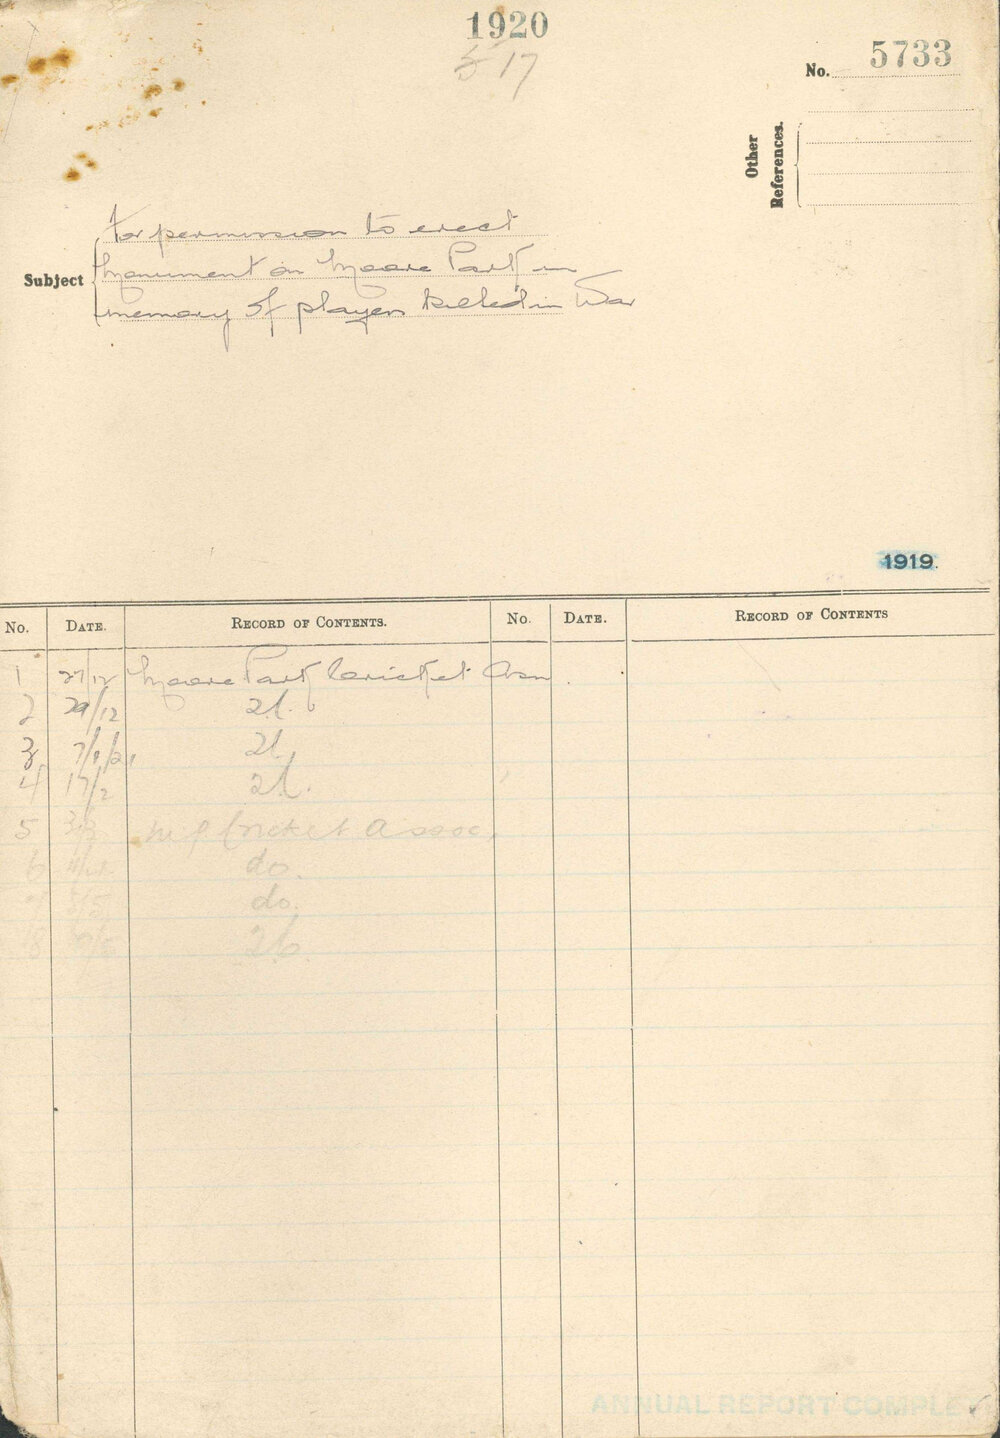 1920
517
No. 5733
Other
References.
Subject
For permission to erect
Monument on Moore Park in
memory of players killed in War
1919.
No. DATE. RECORD OF CONTENTS. No. DATE. RECORD OF CONTENTS
1 27/12 Moore Park Cricket Assn.
2 29/12
3 7/1/21
4 17/2
5 M P Cricket Assoc.
6 do.
7 do.
8
ANNUAL REPORT COMPLE